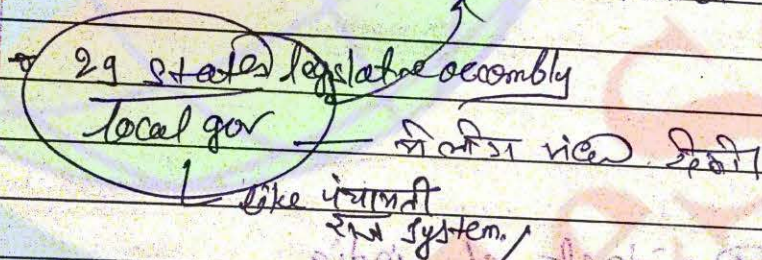 29 states legslative accombly
local gov — ये लोग
like पंचायती
राज system.